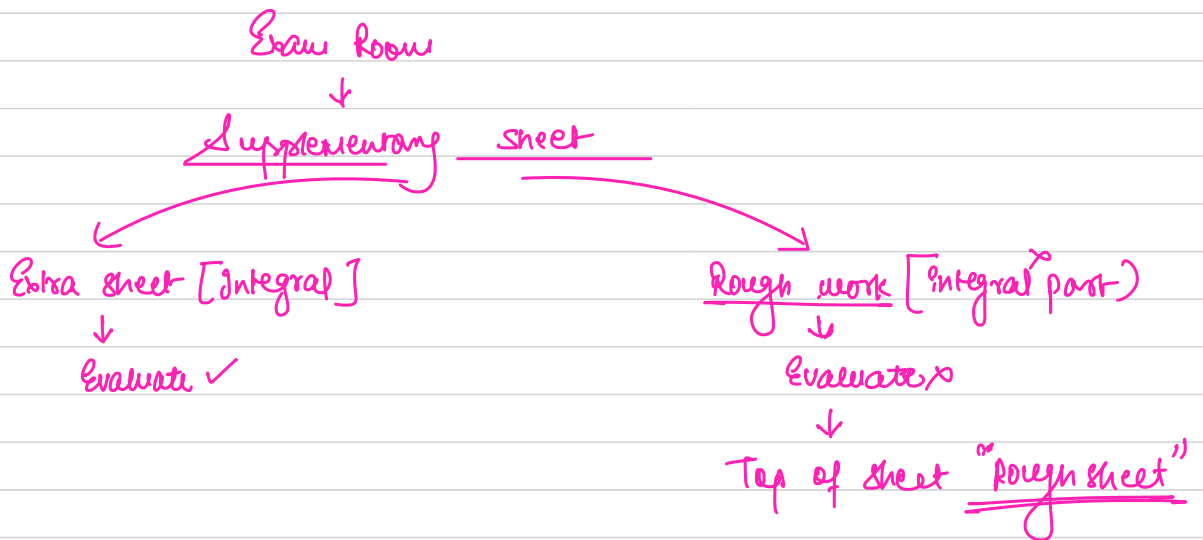 Exam Room
↓
Supplementary sheet
Extra sheet [Integral] Rough work [integral× part)
↓ ↓
Evaluate ✓ Evaluate ×
↓
Top of sheet "Rough sheet"